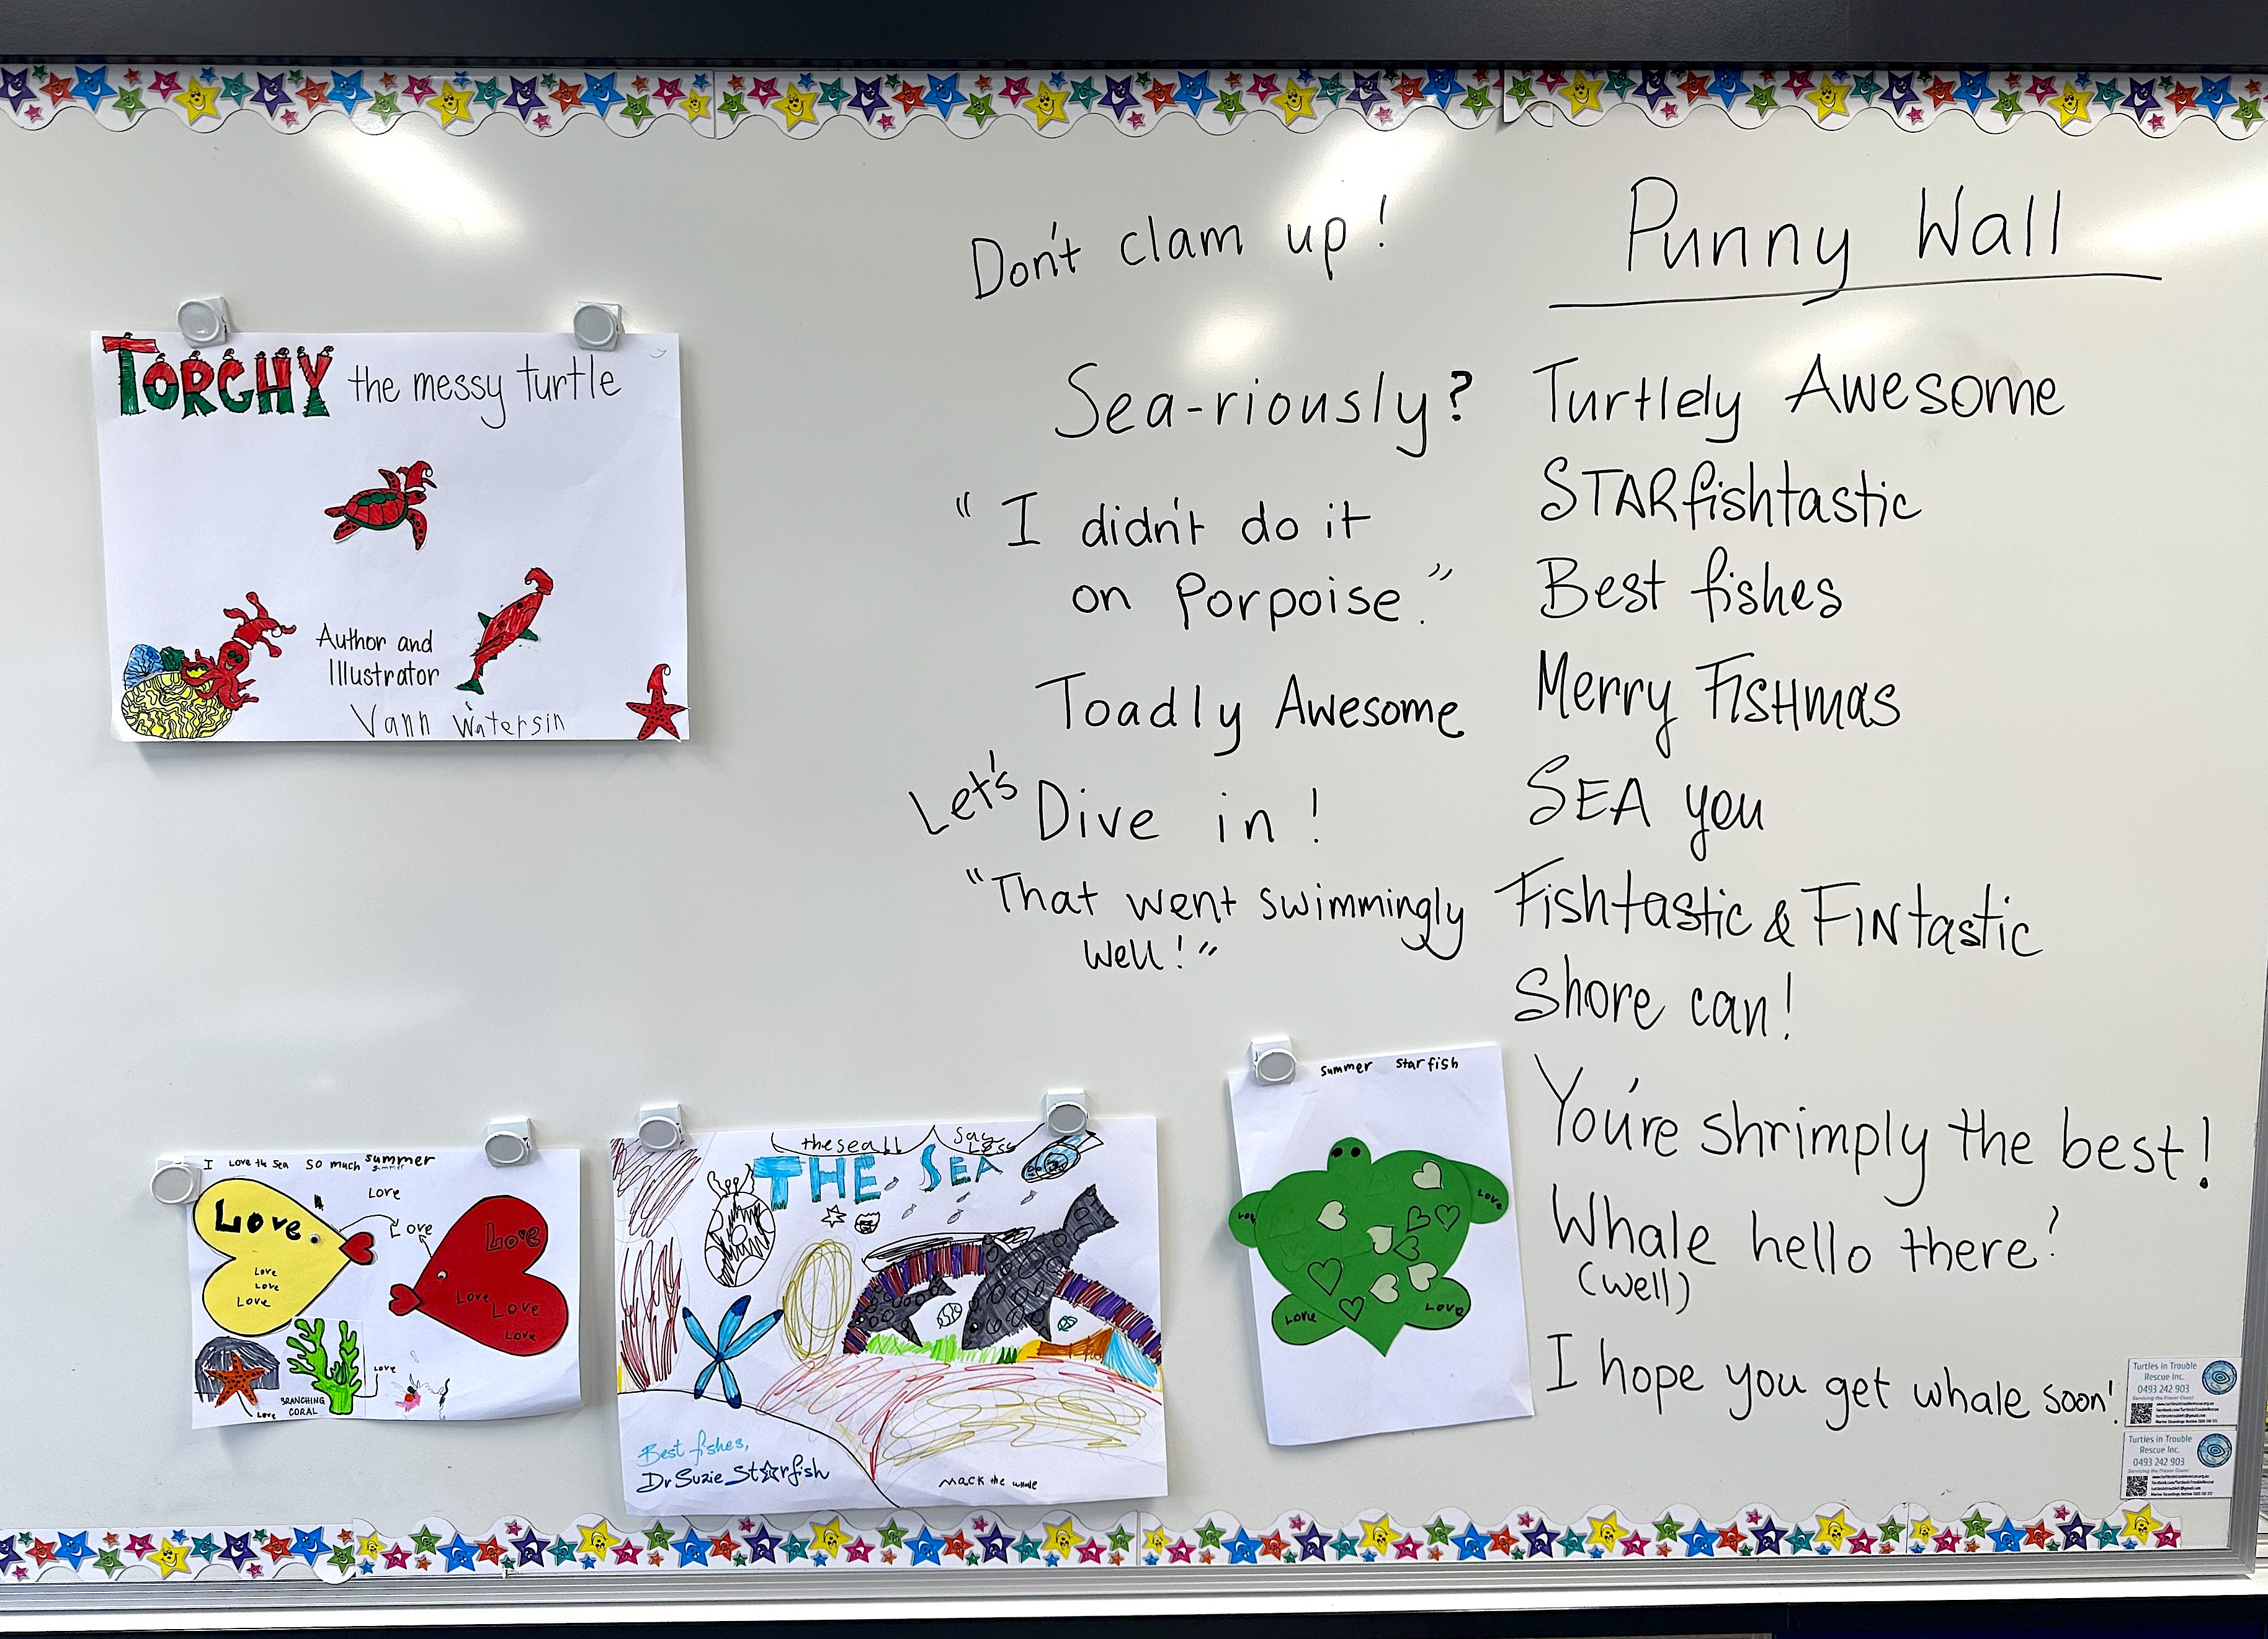 Punny Wall
Don't clam up!
Sea-riously?
"I didn't do it
on Porpoise."
Toadly Awesome
Let's Dive in!
"That went swimmingly
well!"
Turtlely Awesome
STARfishtastic
Best fishes
Merry FISHmas
SEA you
Fishtastic & FINtastic
Shore can!
You're shrimply the best!
Whale hello there?
(well)
I hope you get whale soon!
TORCHY the messy turtle
Author and
Illustrator
Vann Watersin
I Love the Sea so much summer
Love
Love
Love
Love
Love
Love
Love
Love
Love
Love
Love
Love
BRANCHING
CORAL
Love
THE SEA
Best fishes,
Dr Suzie Starfish
Mack the whale
summer starfish
Love
Love
Love
Turtles in Trouble
Rescue Inc.
0493 242 903
Turtles in Trouble
Rescue Inc.
0493 242 903